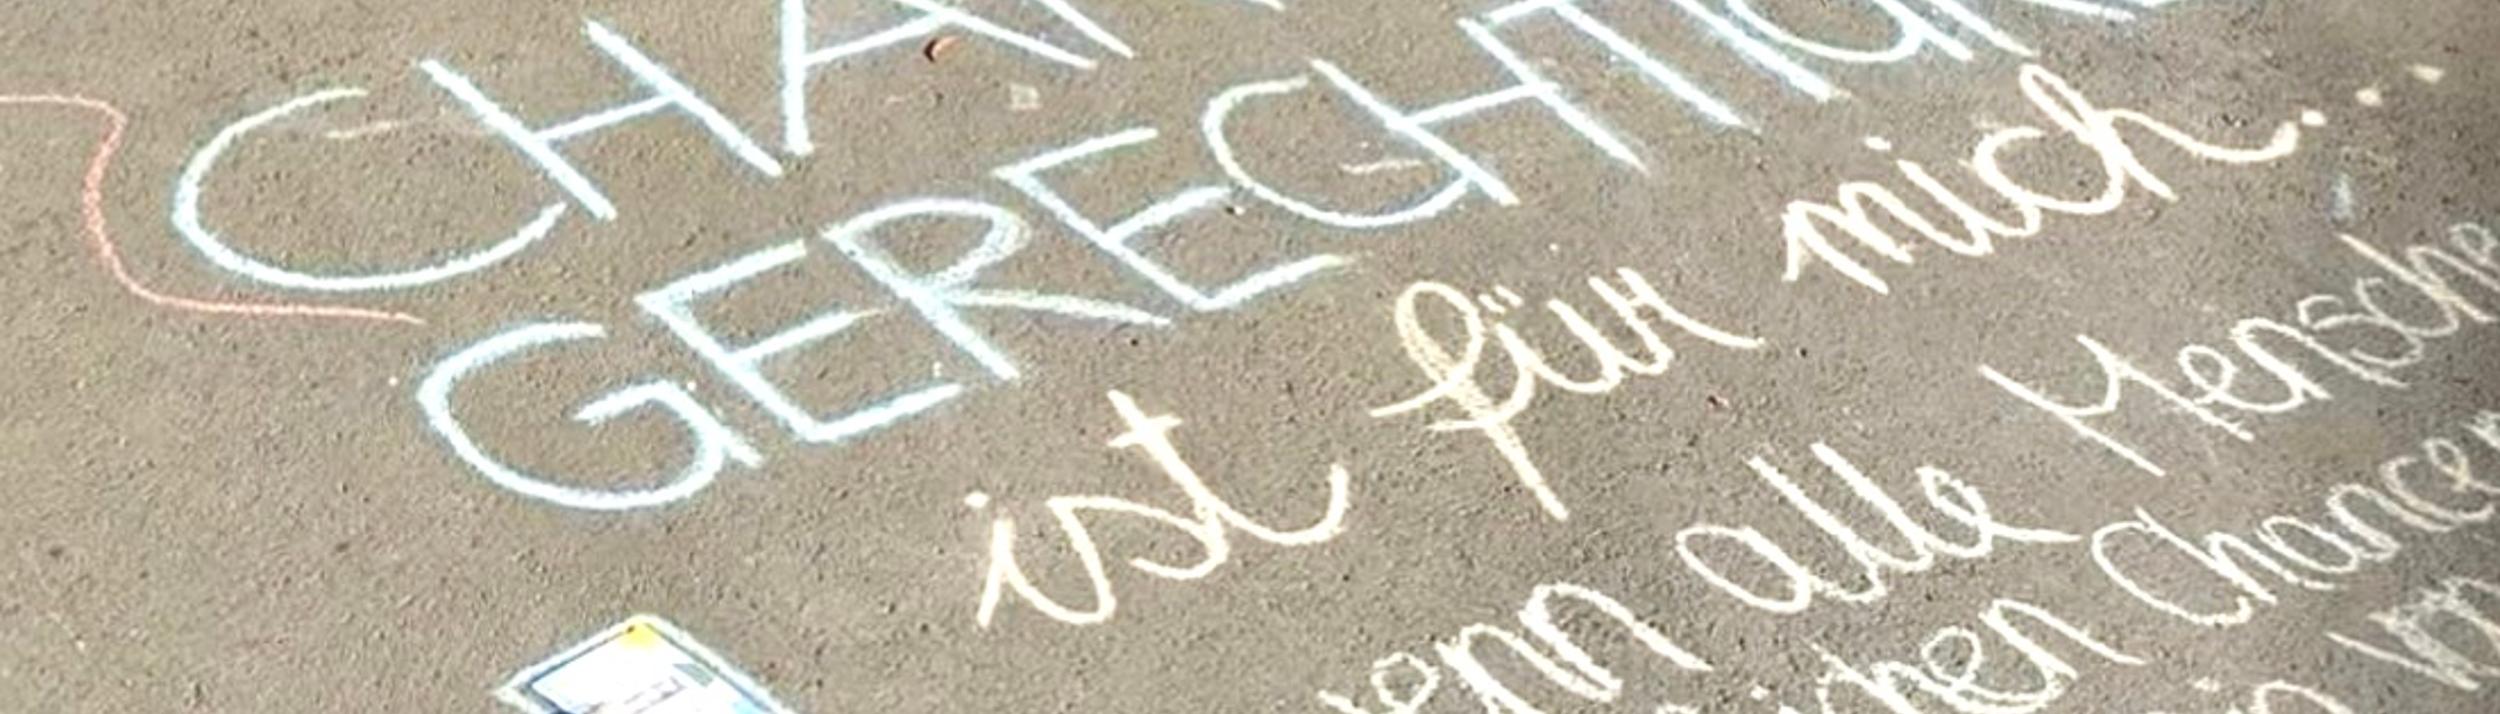 CHAN
GERECHTIGK
ist für mich...
enn alle Mensche
chen Chancen
in